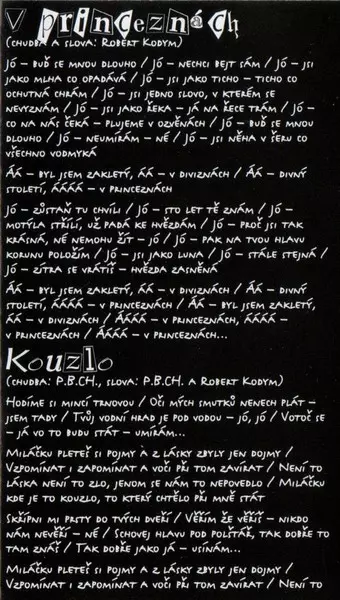 V princeznách
(chudba a slova: Robert Kodym)
Jó – buď se mnou dlouho / Jó – nechci bejt sám / Jó – jsi
jako mlha co opadává / Jó – jsi jako ticho – ticho co
ochutná chrám / Jó – jsi jedno slovo, v kterém se
nevyznám / Jó – jsi jako řeka – já na řece trám / Jó –
co na nás čeká – plujeme v ozvěnách / Jó – buď se mnou
dlouho / Jó – neumírám – né / Jó – jsi něha v šeru co
všechno vodmyká
Áá – byl jsem zakletý, áá – v diviznách / Áá – divný
století, áááá – v princeznách
Jó – zůstaň tu chvíli / Jó – sto let tě znám / Jó –
motýla střílí, už padá ke hvězdám / Jó – proč jsi tak
krásná, né nemohu žít – jó / Jó – pak na tvou hlavu
korunu položím / Jó – jsi jako luna / Jó – stále stejná /
Jó – zítra se vrátíš – hvězda zasněná
Áá – byl jsem zakletý, áá – v diviznách / Áá – divný
století, áááá – v princeznách / Áá – byl jsem zakletý,
áá – v divíznách / Áááá – v princeznách, áááá –
v princeznách / Áááá – v princeznách...
Kouzlo
(chudba: P.B.CH., slova: P.B.CH. a Robert Kodym)
Hodíme si mincí trnovou / Oči mých smutků nenech plát –
jsem tady / Tvůj vodní hrad je pod vodou – jó, jó / Votoč se
– já vo to budu stát – umírám...
Miláčku pleteš si pojmy a z lásky zbyly jen dojmy /
Vzpomínat i zapomínat a voči při tom zavírat / Není to
láska není to zlo, jenom se nám to nepovedlo / Miláčku
kde je to kouzlo, to který chtělo při mně stát
Skřípni mi prsty do tvých dveří / Věřím že věříš – nikdo
nám nevěří – né / Schovej hlavu pod polštář, tak dobře to
tam znáš / Tak dobře jako já – usínám...
Miláčku pleteš si pojmy a z lásky zbyly jen dojmy /
Vzpomínat i zapomínat a voči při tom zavírat / Není to